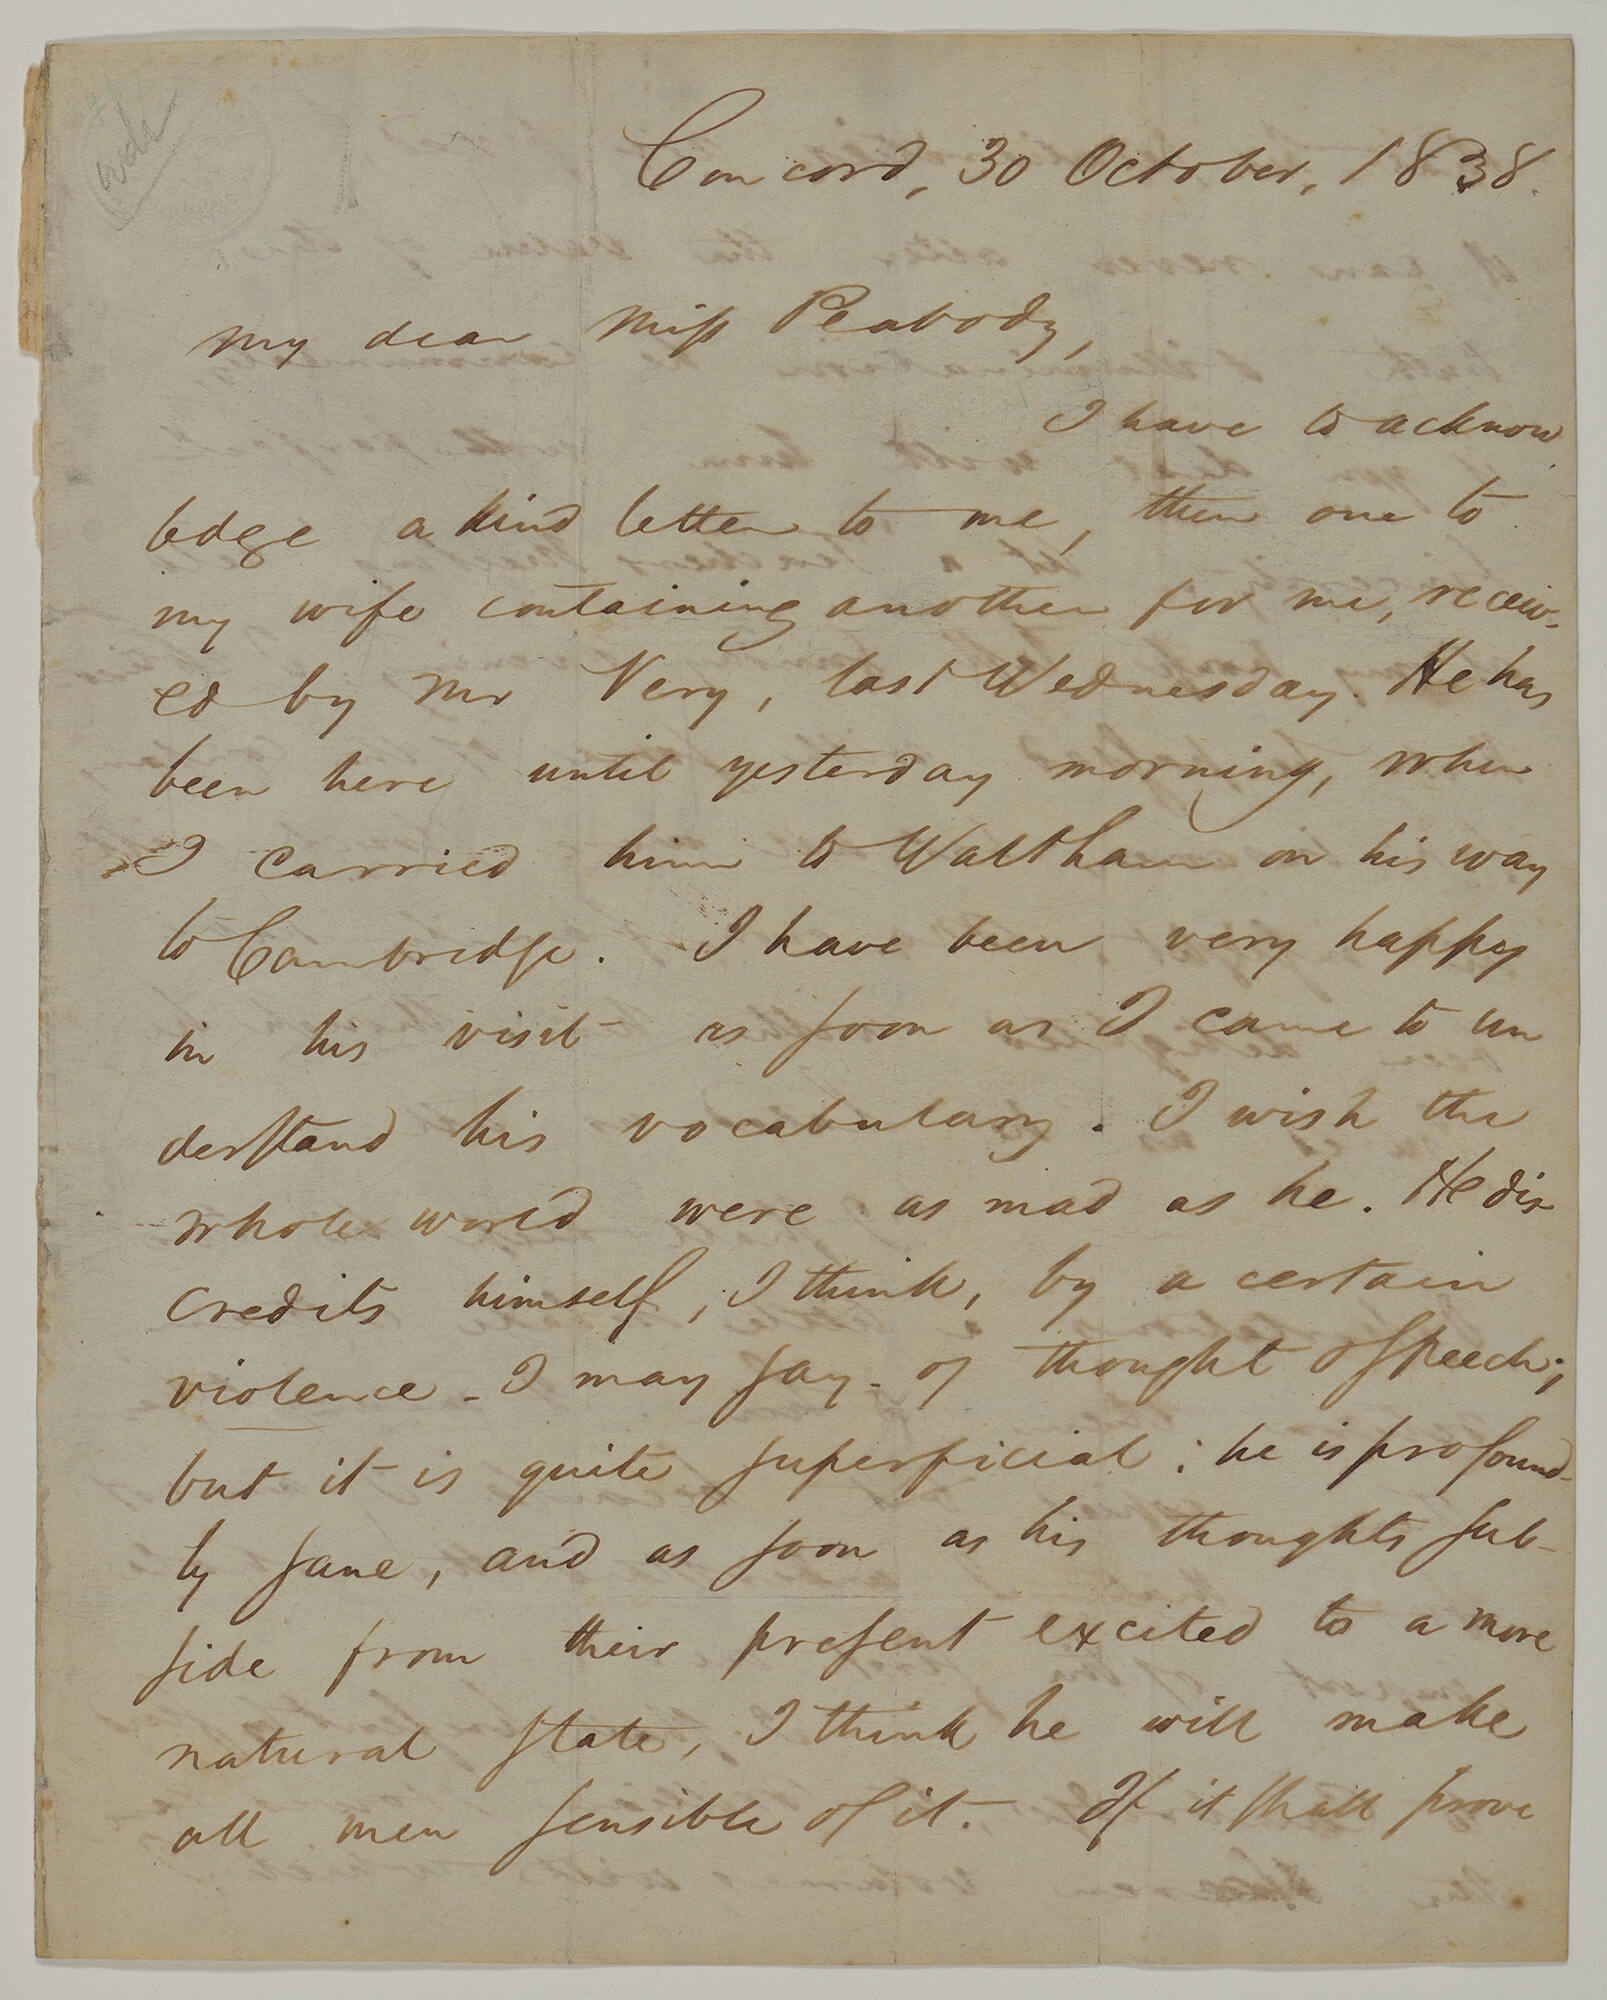 Concord, 30 October, 1838.
My dear Miss Peabody,
I have to acknow
ledge a kind letter to me, then one to
my wife containing another for me, receiv-
ed by Mr Very, last Wednesday. He has
been here until yesterday morning, when
I carried him to Waltham on his way
to Cambridge. I have been very happy
in his visit as soon as I came to un
derstand his vocabulary. I wish the
whole world were as mad as he. He dis
credits himself, I think, by a certain
violence - I may say - of thought & speech;
but it is quite superficial; he is profound-
ly sane, and as soon as his thoughts sub-
side from their present excited to a more
natural state, I think he will make
all men sensible of it. If it shall prove